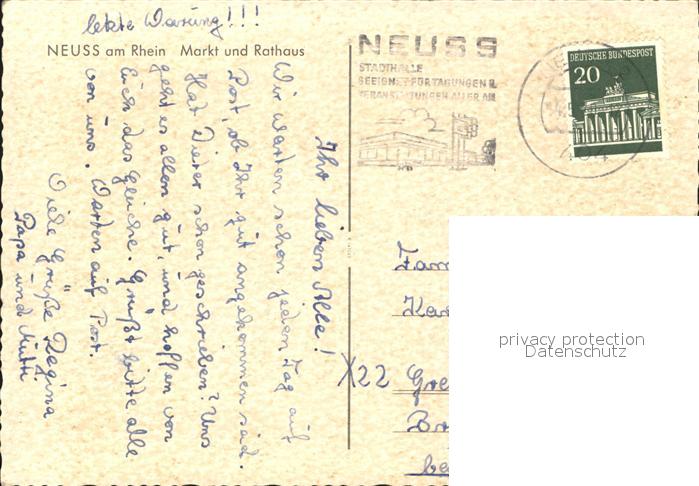 letzte Warung!!!
NEUSS am Rhein Markt und Rathaus
Ihr lieben Alle!
Wir warten schon jeden Tag auf
Post, ob Ihr gut angekommen seid.
Hat Dieter schon geschrieben? Uns
geht es allen gut, und hoffen von
Euch das Gleiche. Grüßt bitte alle
von uns. Warten auf Post.
Viele Grüße Regina
Papa und Mutti
NEUSS
STADTHALLE
GEEIGNET FÜR TAGUNGEN U.
VERANSTALTUNGEN ALLER ART
404
DEUTSCHE BUNDESPOST
20
Fam
X22 Gre
privacy protection
Datenschutz